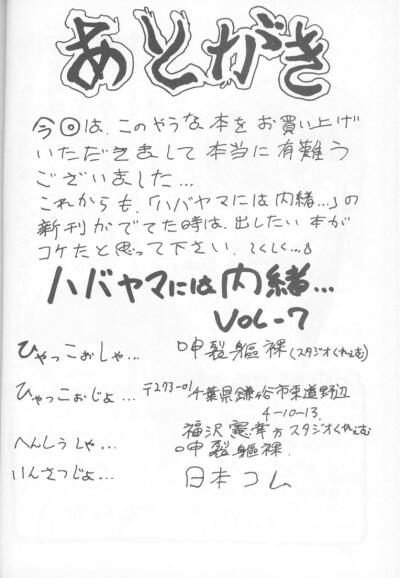 あとがき
今回は、このやうな本をお買い上げ
いただきまして本当に有難う
ございました…
これからも、「ハバヤマには内緒…」の
新刊がでてた時は、出したい本が
コケたと思って下さい。しくしく…
ハバヤマには内緒…
VOL-7
ひゃっこぉしゃ… 呻裂躯裸(スタジオくれぇむ)
ひゃっこぉじょ… 〒273-01千葉県鎌ヶ谷市東道野辺
4-10-13
福沢憲幸方スタジオくれぇむ
へんしうしゃ… 呻裂躯裸
いんさつじょ… 日本コム